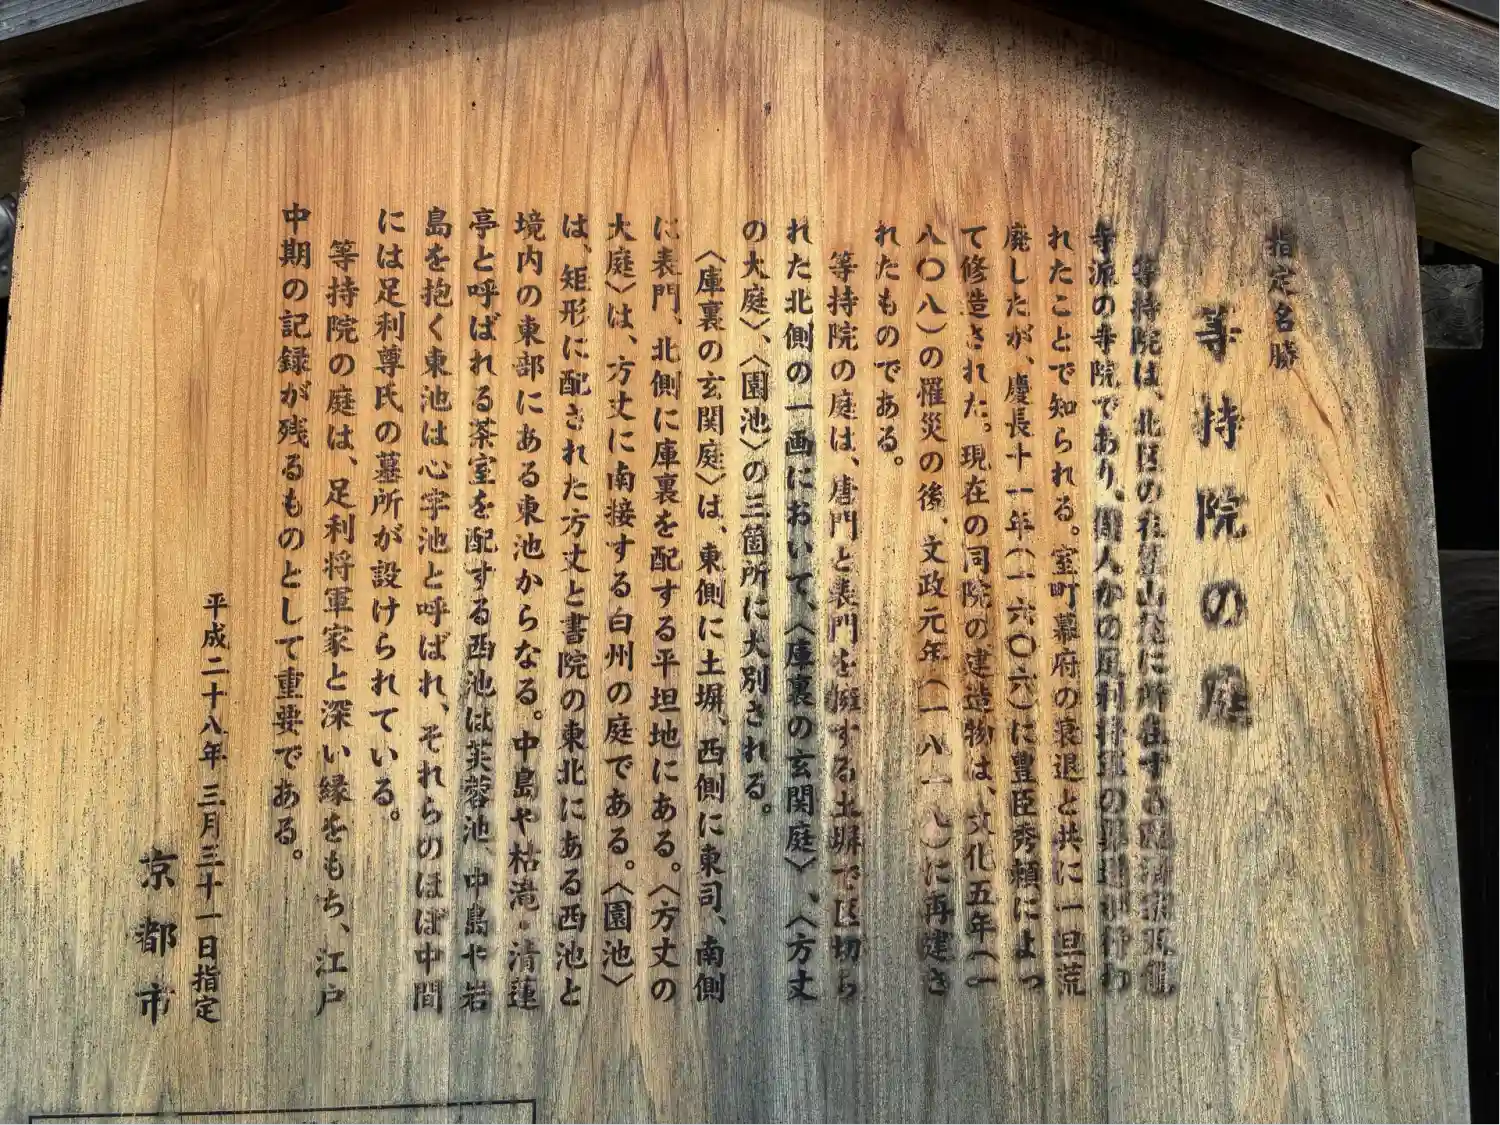 指定名勝
等持院の庭
等持院は、北区の衣笠山麓に所在する臨済宗天龍
寺派の寺院であり、個人かの足利将軍の墓が行わ
れたことで知られる。室町幕府の衰退と共に一旦荒
廃したが、慶長十一年(一六〇六)に豊臣秀頼によっ
て修造された。現在の同院の建造物は、文化五年(一
八〇八)の罹災の後、文政元年(一八一八)に再建さ
れたものである。
等持院の庭は、唐門と表門を擁する土塀で区切ら
れた北側の一画において、〈庫裏の玄関庭〉、〈方丈
の大庭〉、〈園池〉の三箇所に大別される。
〈庫裏の玄関庭〉は、東側に土塀、西側に東司、南側
に表門、北側に庫裏を配する平坦地にある。〈方丈の
大庭〉は、方丈に南接する白州の庭である。〈園池〉
は、矩形に配された方丈と書院の東北にある西池と
境内の東部にある東池からなる。中島や枯滝・清蓮
亭と呼ばれる茶室を配する西池は芙蓉池、中島や岩
島を抱く東池は心字池と呼ばれ、それらのほぼ中間
には足利尊氏の墓所が設けられている。
等持院の庭は、足利将軍家と深い縁をもち、江戸
中期の記録が残るものとして重要である。
平成二十八年三月三十一日指定
京都市